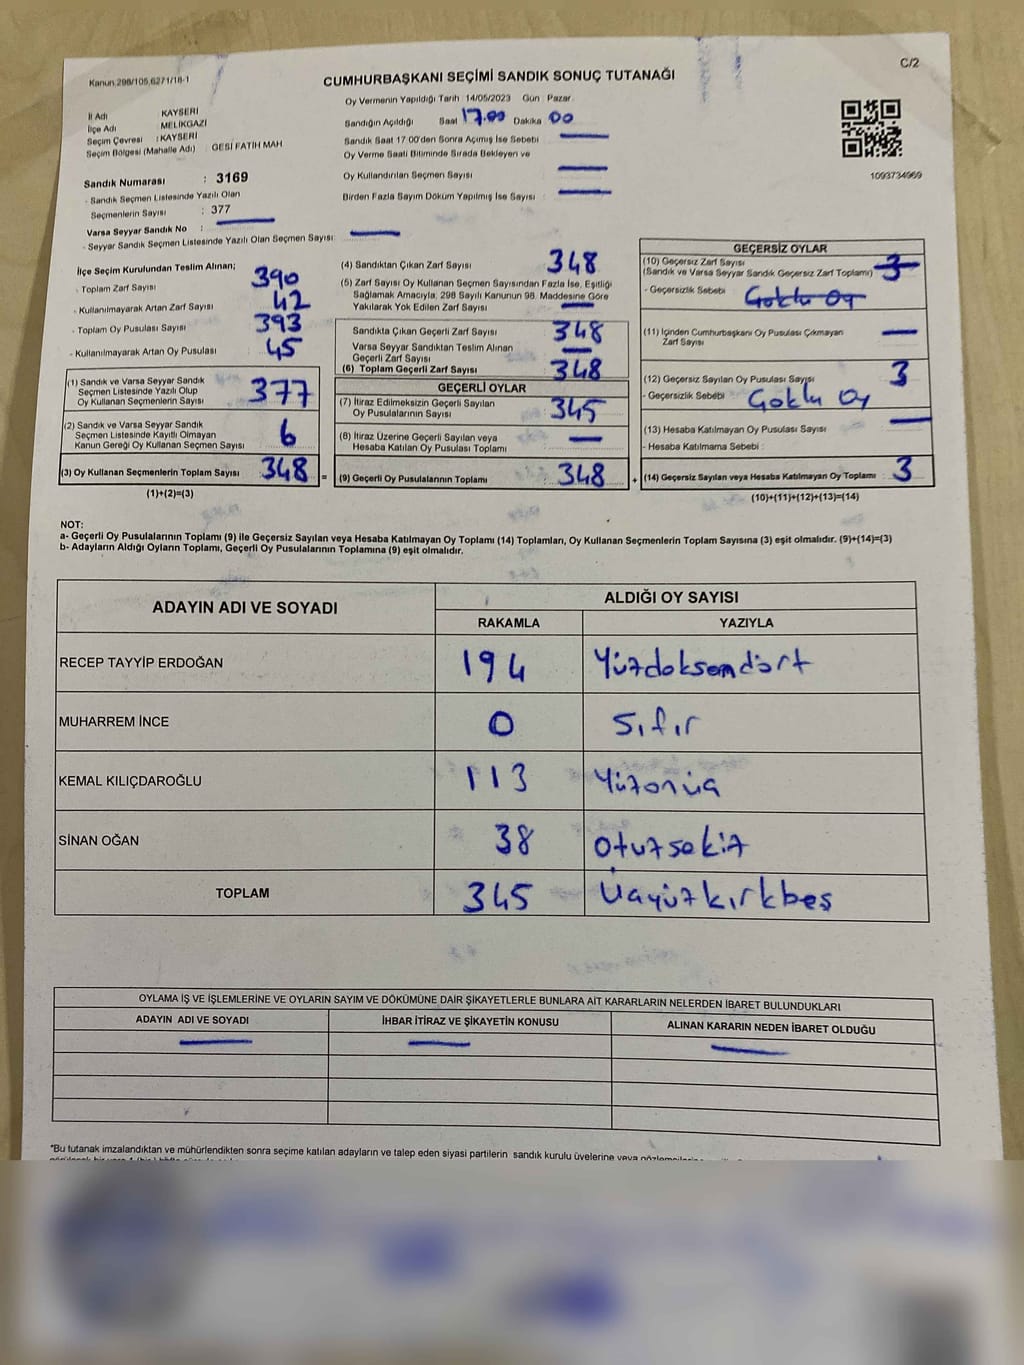 Kanun 298/105,6271/18-1
C/2
CUMHURBAŞKANI SEÇİMİ SANDIK SONUÇ TUTANAĞI
İl Adı : KAYSERİ
İlçe Adı : MELİKGAZİ
Seçim Çevresi : KAYSERİ
Seçim Bölgesi (Mahalle Adı) : GESİ FATİH MAH
Sandık Numarası : 3169
- Sandık Seçmen Listesinde Yazılı Olan
Seçmenlerin Sayısı : 377
Varsa Seyyar Sandık No :
- Seyyar Sandık Seçmen Listesinde Yazılı Olan Seçmen Sayısı:
Oy Vermenin Yapıldığı Tarih 14/05/2023 Gün Pazar
Sandığın Açıldığı Saat 17.00 Dakika 00
Sandık Saat 17 00'den Sonra Açımış İse Sebebi
Oy Verme Saati Bitiminde Sırada Bekleyen ve
Oy Kullandırılan Seçmen Sayısı
Birden Fazla Sayım Döküm Yapılmış İse Sayısı :
1093734969
İlçe Seçim Kurulundan Teslim Alınan;
- Toplam Zarf Sayısı 390
- Kullanılmayarak Artan Zarf Sayısı 42
- Toplam Oy Pusulası Sayısı 393
- Kullanılmayarak Artan Oy Pusulası 45
(1) Sandık ve Varsa Seyyar Sandık
Seçmen Listesinde Yazılı Olup
Oy Kullanan Seçmenlerin Sayısı 377
(2) Sandık ve Varsa Seyyar Sandık
Seçmen Listesinde Kayıtlı Olmayan
Kanun Gereği Oy Kullanan Seçmen Sayısı 6
(3) Oy Kullanan Seçmenlerin Toplam Sayısı 348 =
(1)+(2)=(3)
(4) Sandıktan Çıkan Zarf Sayısı 348
(5) Zarf Sayısı Oy Kullanan Seçmen Sayısından Fazla İse, Eşitliği
Sağlamak Amacıyla, 298 Sayılı Kanunun 98. Maddesine Göre
Yakılarak Yok Edilen Zarf Sayısı
Sandıkta Çıkan Geçerli Zarf Sayısı 348
Varsa Seyyar Sandıktan Teslim Alınan
Geçerli Zarf Sayısı
(6) Toplam Geçerli Zarf Sayısı 348
GEÇERLİ OYLAR
(7) İtiraz Edilmeksizin Geçerli Sayılan
Oy Pusulalarının Sayısı 345
(8) İtiraz Üzerine Geçerli Sayılan veya
Hesaba Katılan Oy Pusulası Toplamı
(9) Geçerli Oy Pusulalarının Toplamı 348 +
GEÇERSİZ OYLAR
(10) Geçersiz Zarf Sayısı
(Sandık ve Varsa Seyyar Sandık Geçersiz Zarf Toplamı) 3
- Geçersizlik Sebebi Goklu Oy
(11) İçinden Cumhurbaşkanı Oy Pusulası Çıkmayan
Zarf Sayısı
(12) Geçersiz Sayılan Oy Pusulası Sayısı 3
- Geçersizlik Sebebi Goklu Oy
(13) Hesaba Katılmayan Oy Pusulası Sayısı
- Hesaba Katılmama Sebebi :
(14) Geçersiz Sayılan veya Hesaba Katılmayan Oy Toplamı 3
(10)+(11)+(12)+(13)=(14)
NOT:
a- Geçerli Oy Pusulalarının Toplamı (9) ile Geçersiz Sayılan veya Hesaba Katılmayan Oy Toplamı (14) Toplamları, Oy Kullanan Seçmenlerin Toplam Sayısına (3) eşit olmalıdır. (9)+(14)=(3)
b- Adayların Aldığı Oyların Toplamı, Geçerli Oy Pusulalarının Toplamına (9) eşit olmalıdır.
ADAYIN ADI VE SOYADI ALDIĞI OY SAYISI
RAKAMLA YAZIYLA
RECEP TAYYİP ERDOĞAN 194 Yüzdoksandört
MUHARREM İNCE 0 Sıfır
KEMAL KILIÇDAROĞLU 113 Yüzonüç
SİNAN OĞAN 38 Otuzsekiz
TOPLAM 345 Üçyüzkırkbeş
OYLAMA İŞ VE İŞLEMLERİNE VE OYLARIN SAYIM VE DÖKÜMÜNE DAİR ŞİKAYETLERLE BUNLARA AİT KARARLARIN NELERDEN İBARET BULUNDUKLARI
ADAYIN ADI VE SOYADI İHBAR İTİRAZ VE ŞİKAYETİN KONUSU ALINAN KARARIN NEDEN İBARET OLDUĞU
*Bu tutanak imzalandıktan ve mühürlendikten sonra seçime katılan adayların ve talep eden siyasi partilerin sandık kurulu üyelerine veya